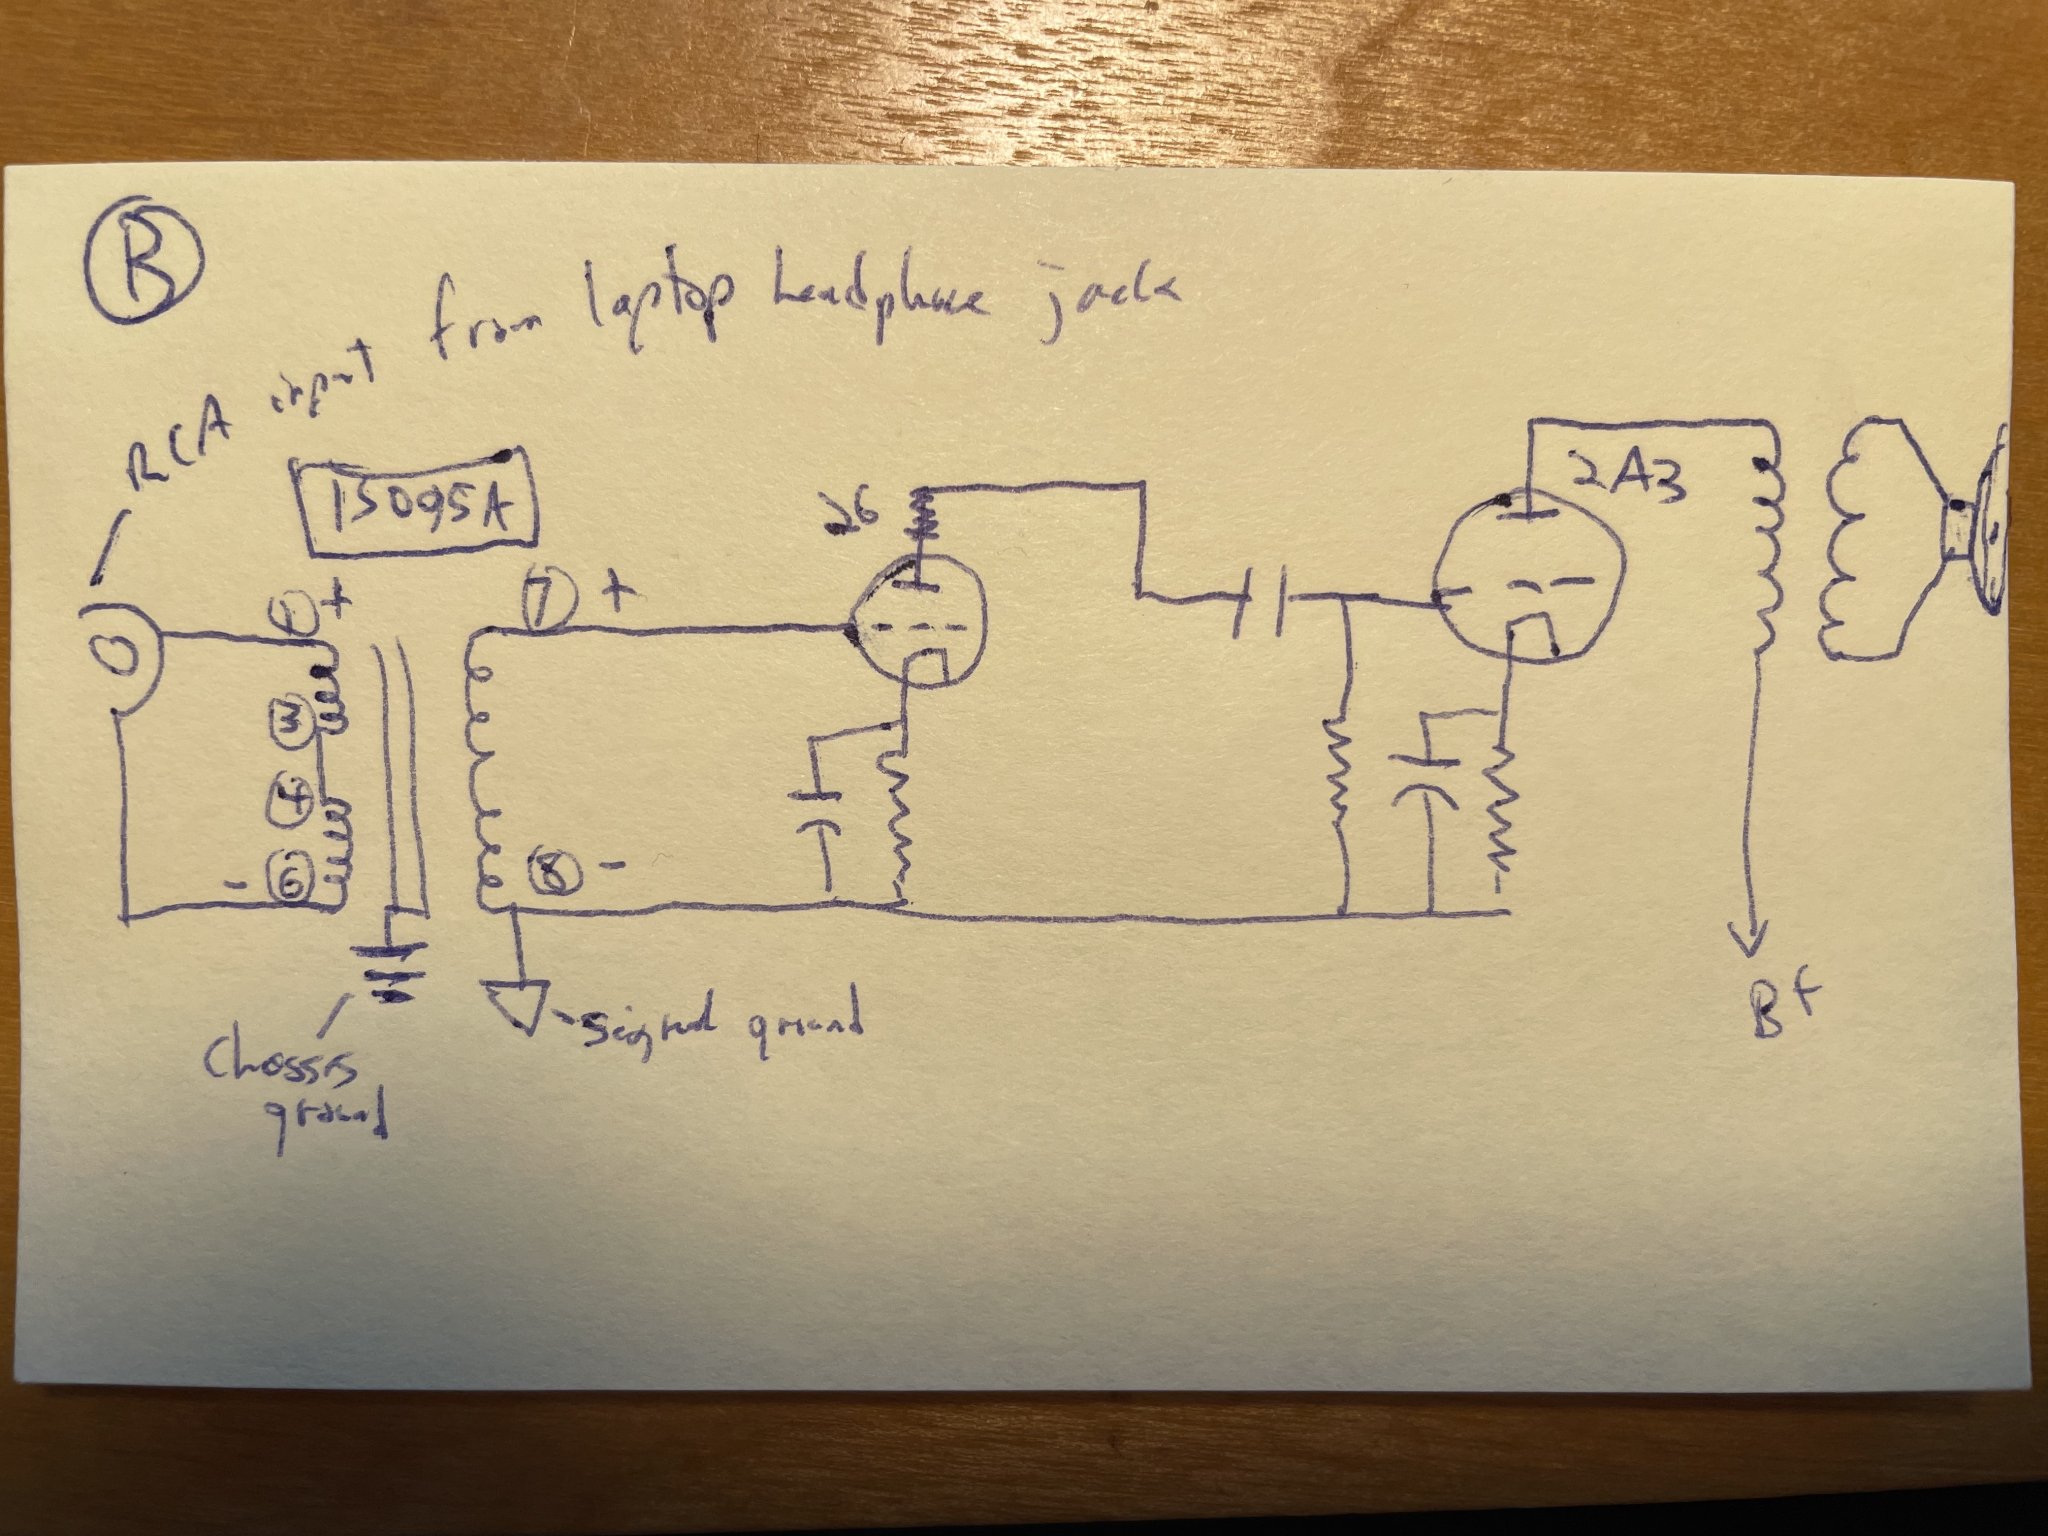 B
RCA input from laptop headphone jack
15095A
1 +
3
4
- 6
7 +
8 -
26
2A3
B+
Chassis
ground
signal ground